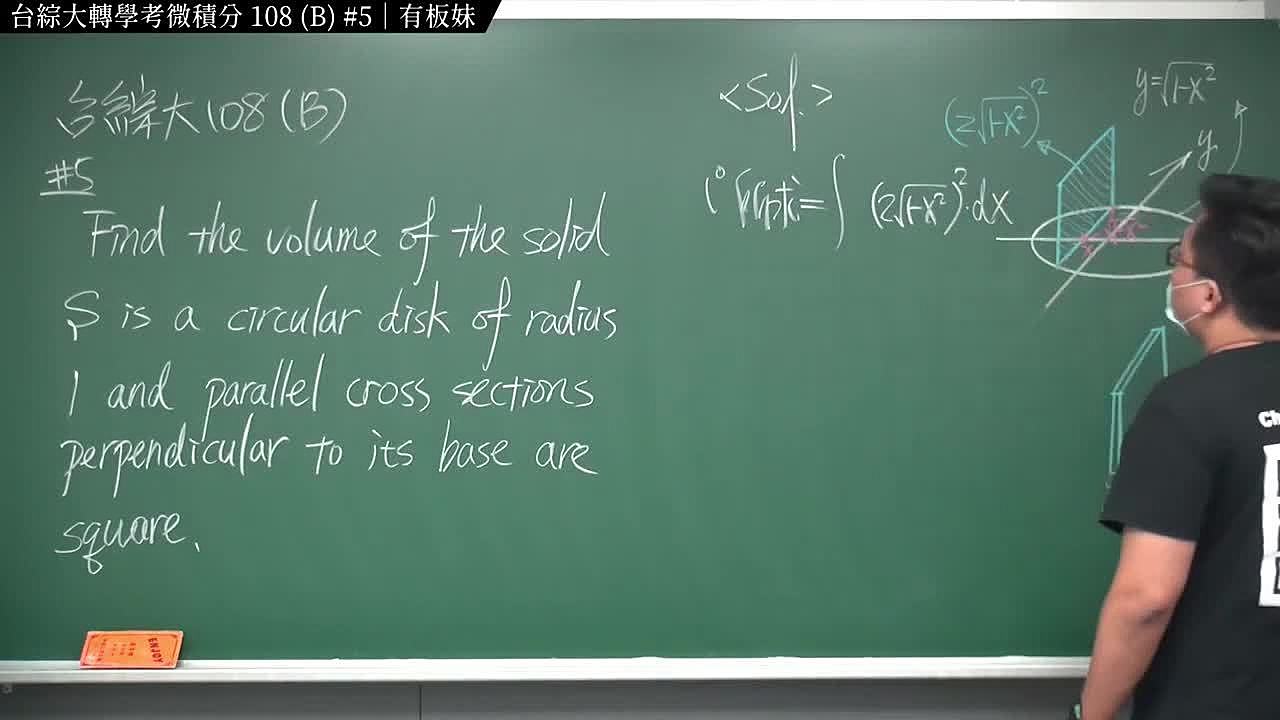 台綜大轉學考微積分 108 (B) #5｜有板妹
台綜大108(B)
#5
Find the volume of the solid
S is a circular disk of radius
1 and parallel cross sections
perpendicular to its base are
square.
<Sol.>
1° 所求=∫(2√1-x²)²·dx
(2√1-x²)²
y=√1-x²
y
ENJOY